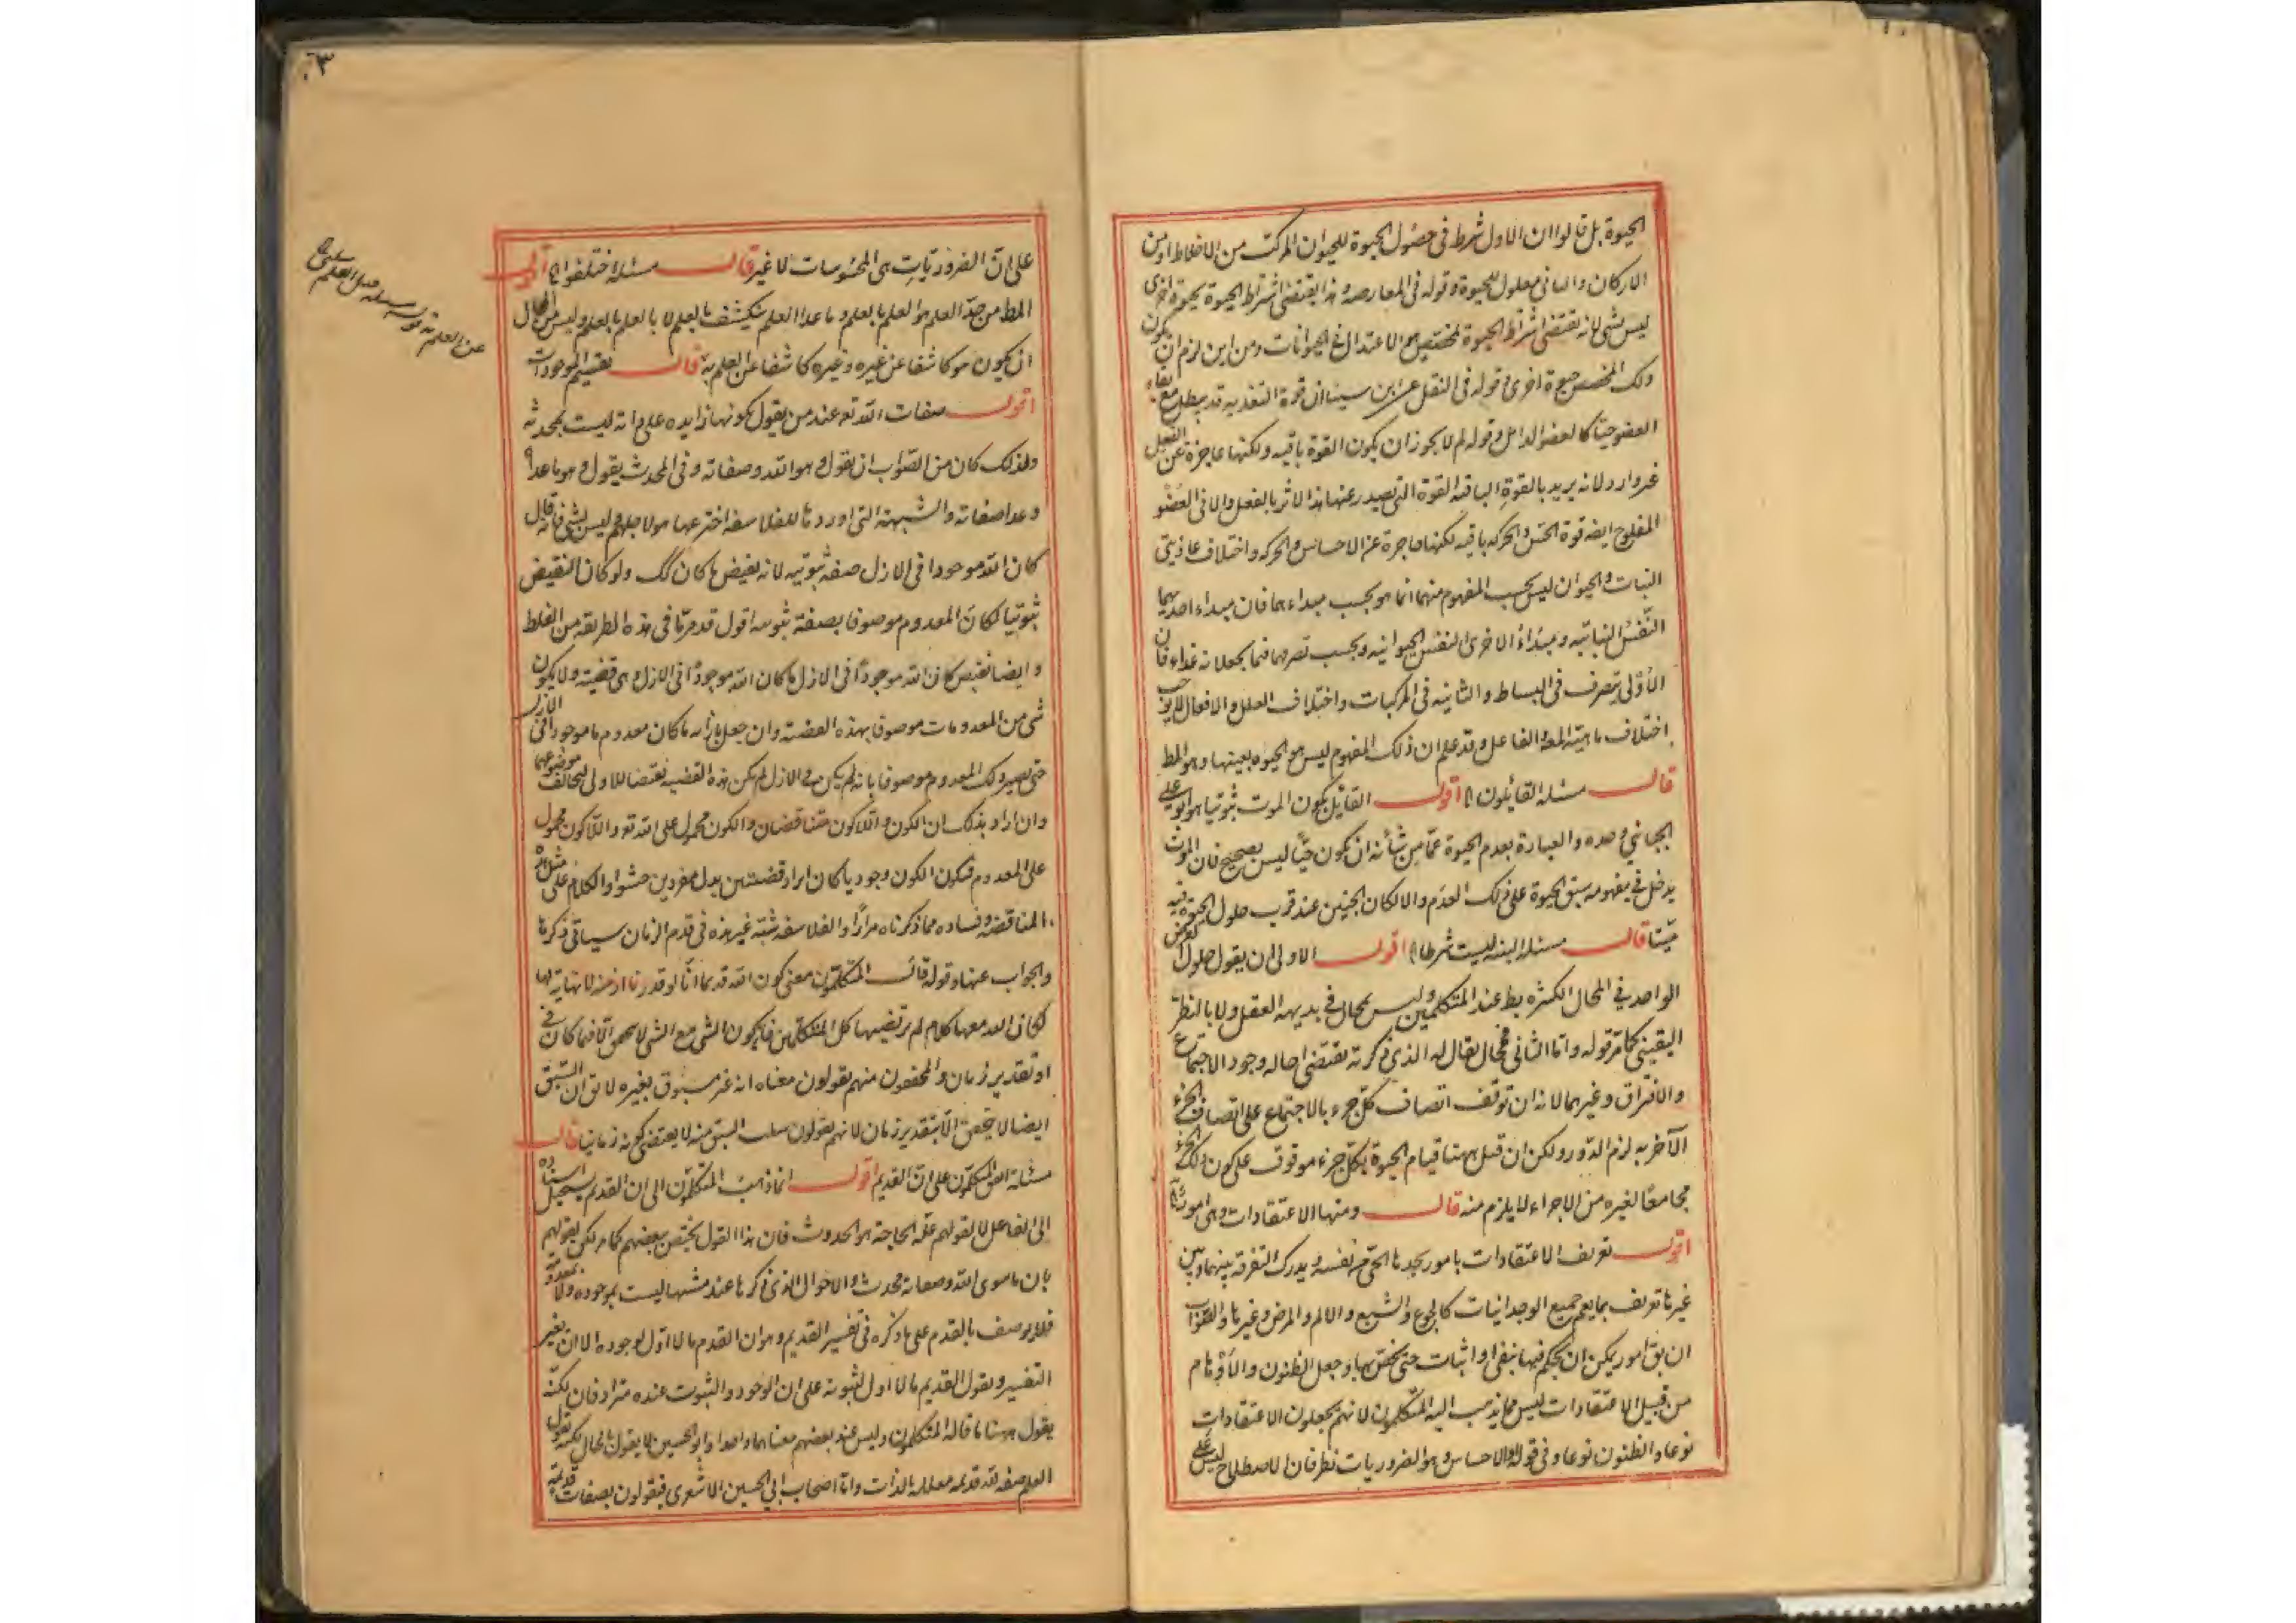 الحيوة بل قالوا ان الاول شرط فى حصول الحيوة للحيوان المركب من الاخلاط او من
الاركان والثانى معلول للحيوة وقوله فى المعارضة وهذا يقتضى اشتراط الحيوة بحيوة اخرى
ليس بشى لانه يقتضى اشتراط الحيوة بمخصص هو الاعتدال فى الحيوانات ومن اين لزم ان يكون
ذلك المخصص حيوة اخرى وقوله فى النقل عن ابن سينا ان قوة التغذيه قد يبطل مع بقاء
العضو حيّا كالعضو الذابل وقوله لم لا يجوز ان يكون القوة باقيه ولكنها عاجزة عن الفعل
غير وارد لانه يريد بالقوة الباقيه القوة التى يصدر عنها هذا الاثر بالفعل والا فى العضو
المفلوج ايضه قوة الحس والحركه باقيه لكنها عاجزة عن الاحساس والحركه واختلاف غاذيتى
النبات والحيوان ليس بحسب المفهوم منهما انما هو بحسب مبداءهما فان مبداء احديهما
النفس النباتيه ومبداء الاخرى النفس الحيوانيه وبحسب تصرفهما فيما يجعلانه غذاء فان
الاولى يتصرف فى البساط والثانيه فى المركبات واختلاف العلل والافعال لا يوجب
اختلاف ماهية المعه الفاعل وقد علم ان ذلك المفهوم ليس هو الحيوه بعينها وهو المط
قال مسئله القائلون اه اقول القائل بكون الموت ثبوتيا هو ابو على
الجبائي وحده والعبارة بعدم الحيوة عمّا من شأنه ان يكون حيّا ليس بصحيح فان الموت
يدخل في مفهومه سبق الحيوة على ذلك العدم والا لكان الجنين عند قرب حلول الحيوة فيه
ميّتا قال مسئله البنيه ليست شرطا اه اقول الاولى ان يقول حلول العرض
الواحد في المحال الكثيره بط عند المتكلمين وليس بمحال في بديهه العقل ولا بالنظر
اليقينى كما مرّ قوله واما الثانى فمحال يقال له الذى ذكرته يقتضى احاله وجود الاجتماع
والافتراق وغيرهما لانه ان توقف اتصاف كل جزء بالاجتماع على اتصاف الجزء
الآخر به لزم الدور ولكن ان قيل ههنا قيام الحيوة بكل جزء موقوف على كون ذلك الجزء
مجامعا لغيره من الاجزاء لا يلزم منه قال ومنها الاعتقادات وهى امور اه
اقول تعريف الاعتقادات بامور يجدها الحىّ من نفسه ويدرك التفرقه بينها وبين
غيرها تعريف بما يعم جميع الوجدانيات كالجوع والشبع والالم والمرض وغيرها والصواب
ان يق امور يمكن ان يحكم فيها بنفى او اثبات حتى يختص بها وجعل الظنون والاوهام
من قبيل الاعتقادات ليس مما يذهب اليه المتكلمون لانهم يجعلون الاعتقادات
نوعا والظنون نوعا وفى قوله والاحساس وهو الضروريات نظر فان الاصطلاح ليس على
٣٠
على ان الضروريات هى المحسوسات لا غير قال مسئله اختلفوا اه اقول
المط من حدّ العلم هو العلم بالعلم وما عدا العلم ينكشف بالعلم لا بالعلم بالعلم وليس من المحال
ان يكون هو كاشفا عن غيره وغيره كاشفا عن العلم به قال تقسيم الموجودات
اقول صفات الله تع عند من يقول بكونها زايده على ذاته ليست بمحدثه
ولذلك كان من الصواب ان يقول وهو الله وصفاته وفى المحدث يقول وهو ما عداه
وعدا صفاته والشبهة التى اوردها للفلاسفه اخترعها هو لاجلهم وليس بشى فانه قال
كان الله موجودا فى الازل صفه ثبوتيه لانه نقيض ما كان كك ولو كان النقيض
ثبوتيا لكان المعدوم موصوفا بصفة ثبوتيه اقول قد مرّ ما فى هذه الطريقه من الغلط
وايضا نقيض كان الله موجودا فى الازل ما كان الله موجودا فى الازل وهى قضيته ولا يكون
شى من المعدومات موصوفا بهذه القضيه وان جعل بازائه ما كان معدوم ما موجودا فى الازل
حتى يصير ذلك المعدوم موصوفا بانه لم يكن فى الازل لم يكن هذه القضيه نقيضا للاولى لتخالف موضوعهما
وان اراد بذلك ان الكون واللاكون متناقضان والكون محمول على الله تع واللاكون محمول
على المعدوم فيكون الكون وجوديا كان ايراد قضيتين بدل مفردين حشوا والكلام على مثل هذه
المناقضه وفساده مما ذكرناه مرارا وللفلاسفه شبه غير هذه فى قدم الزمان سياتى ذكرها
والجواب عنها وقوله قال المتكلمون معنى كون الله قديما انا لو قدرنا ازمنه لا نهايه لها
لكان الله معها كلام لم يرتضيها كل المتكلمين فان كون الشى مع الشى لا يتحقق الا فيما كان فى
او تقدير زمان والمحققون منهم يقولون معناه انه غير مسبوق بغيره لا يق ان السبق
ايضا لا يتحقق الا بتقدير زمان لانهم يقولون سلب السبق منه لا يقتضى كونه زمانيا قال
مسئله اتفق المتكلمون على ان القديم اقول انما ذهب المتكلمون الى ان القديم يستحيل اسناده
الى الفاعل لا لقولهم علّه الحاجة هو الحدوث فان هذا القول يختص ببعضهم كما مر لكن لقولهم
بان ما سوى الله وصفاته محدث والاحوال الذى ذكرها عند مثبتيها ليست بموجوده ولا معدومه
فلا يوصف بالقدم على ما ذكره فى تفسير القديم وهو ان القدم ما لا اول لوجوده الا ان يغير
التفسير ويقول القديم ما لا اول لثبوته على ان الوجود والثبوت عنده مترادفان لكنه
يقول ههنا ما قاله المتكلمون وليس عند بعضهم معناهما واحدا وابو الحسين لا يقول بالحال لكنه يقول
العلم صفه لله قديمه معلله بالذات واما اصحاب ابى الحسين الاشعرى فيقولون بصفات قديمه